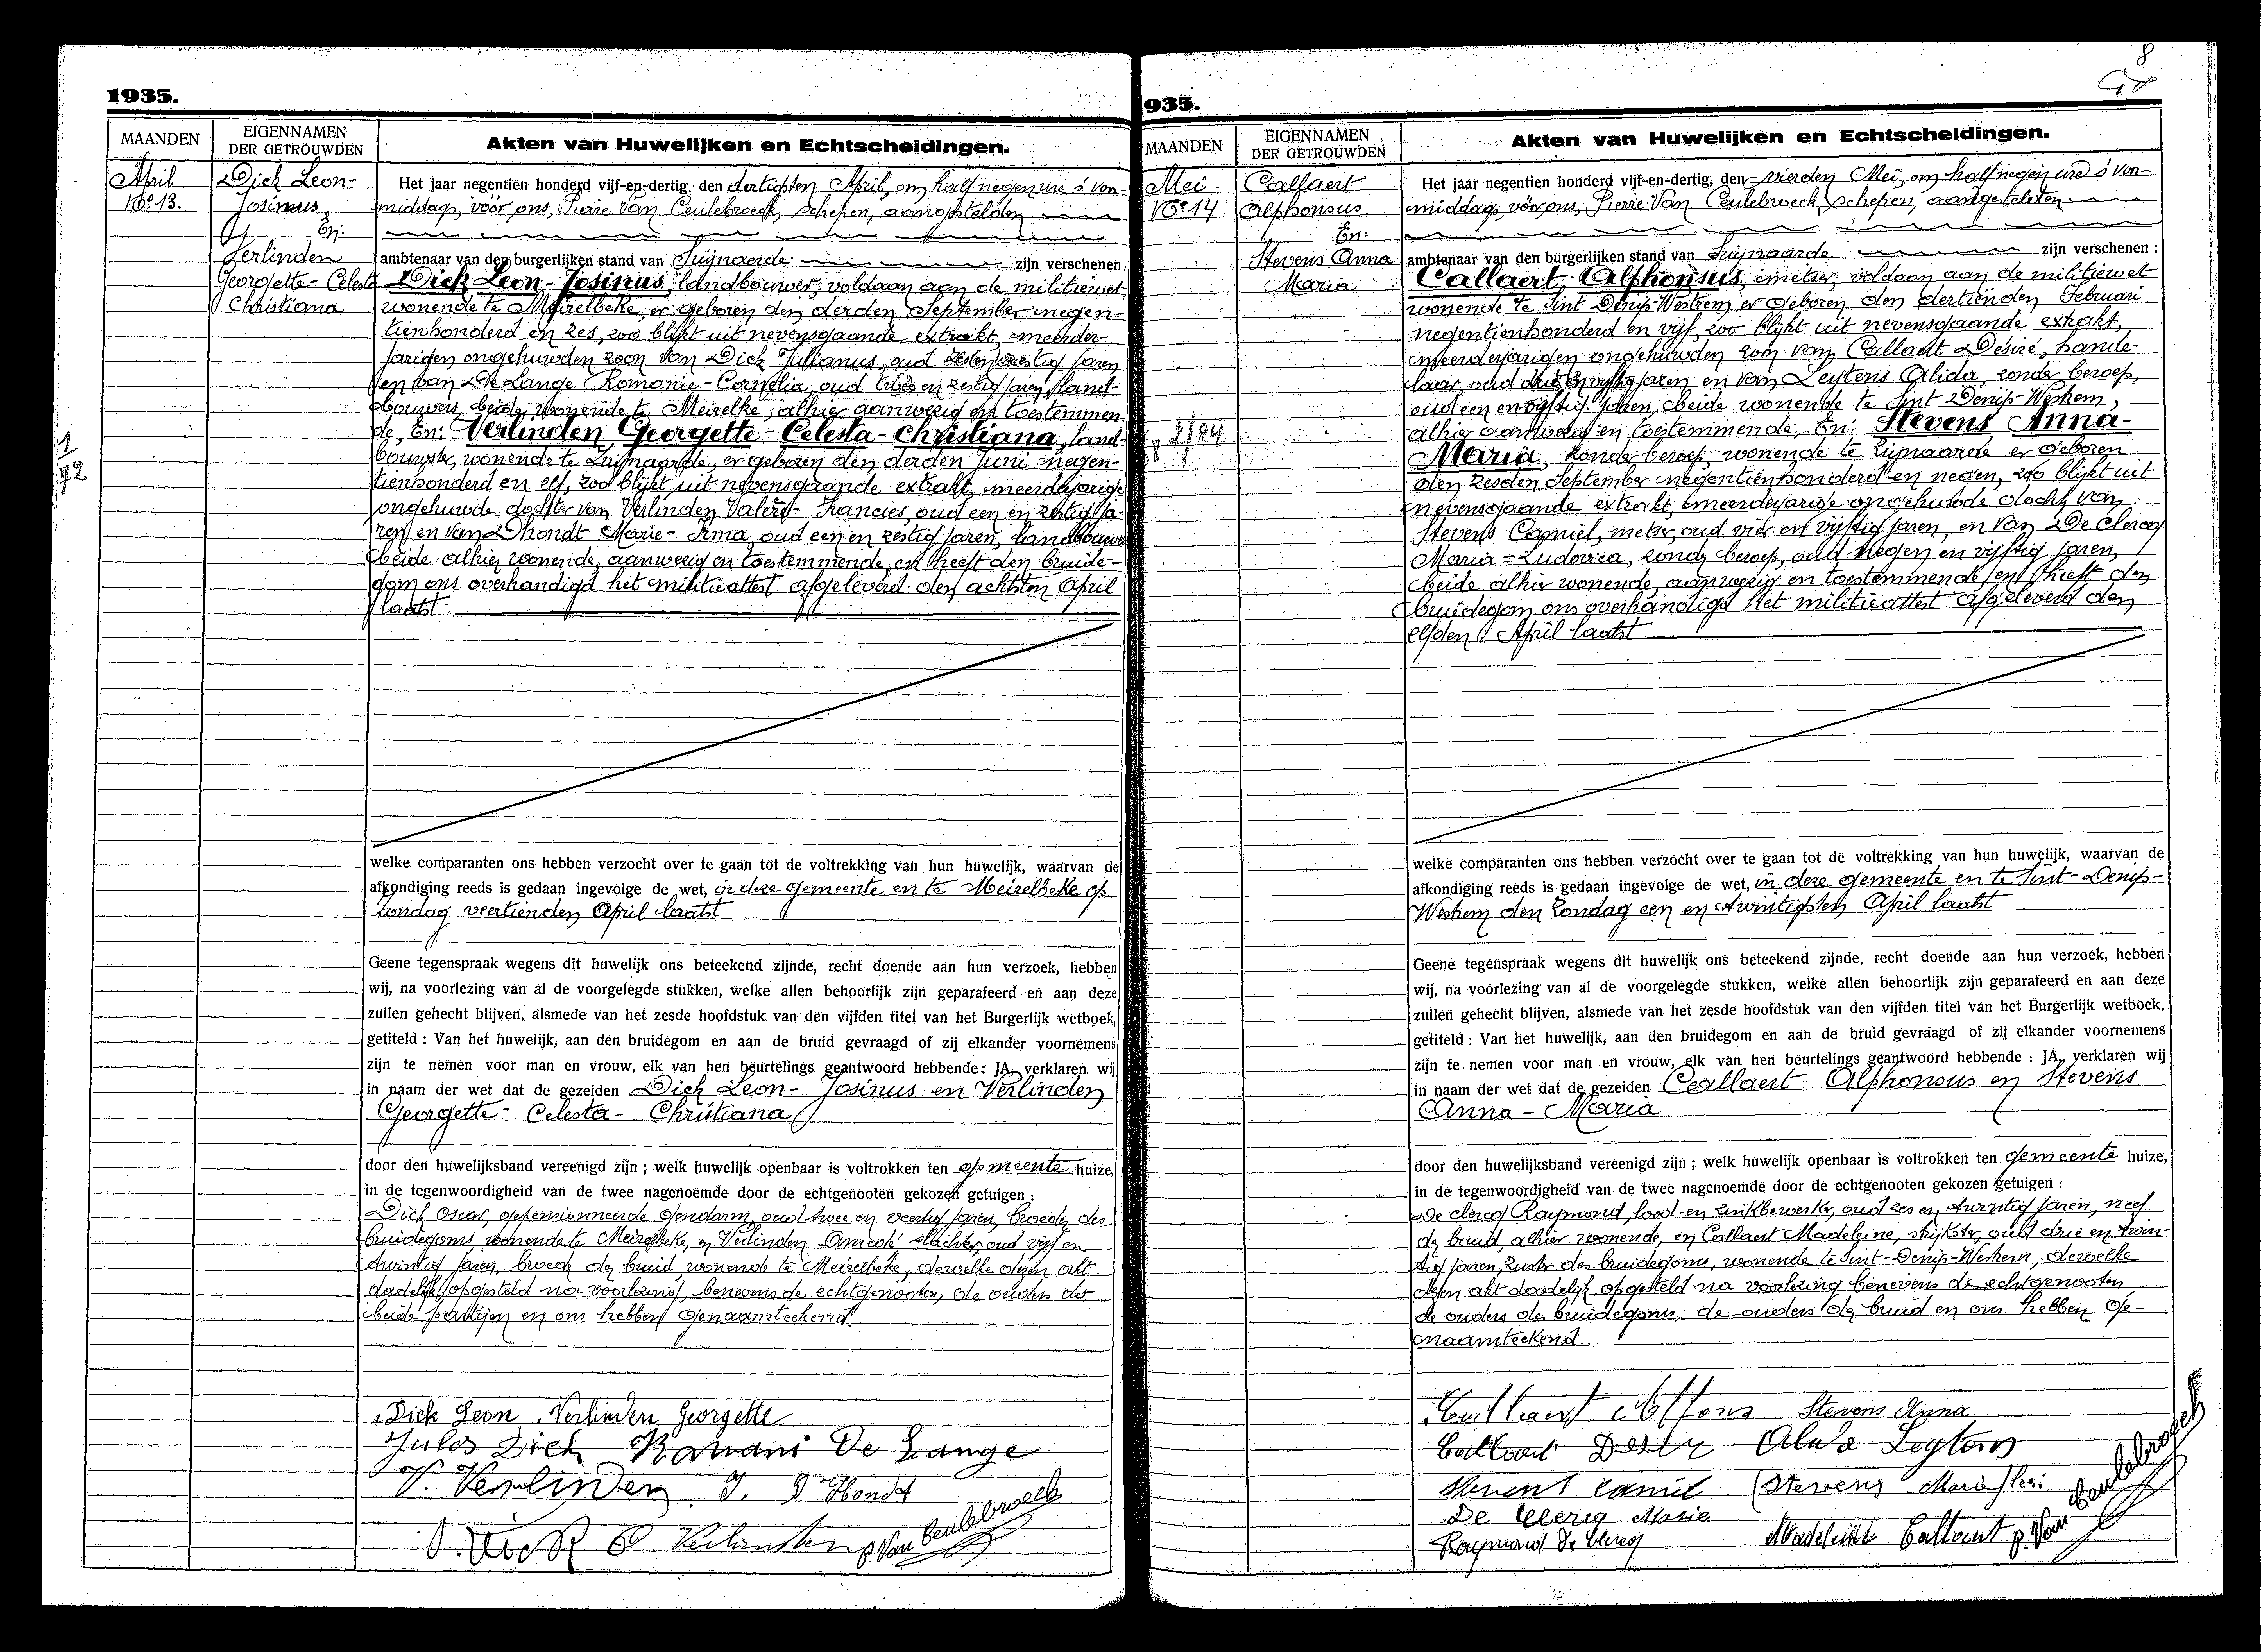 1935.
MAANDEN
EIGENNAMEN
DER GETROUWDEN
Akten van Huwelijken en Echtscheidingen.
April
No 13.
Dick Leon-
Josinus
En:
Verlinden
Georgette-Celesta
Christiana
1/92
Het jaar negentien honderd vijf-en-dertig, den dertigsten April, om half negen ure 's voor-
middags, vóór ons, Pierre Van Ceulebroeck, schepen, aangestelden
ambtenaar van den burgerlijken stand van Zwijnaarde zijn verschenen:
Dick Leon-Josinus, landbouwer, voldaan aan de militiewet
wonende te Meirelbeke, er geboren den derden September negen-
tienhonderd en zes, zoo blijkt uit nevensgaande extrakt, meerder-
jarigen ongehuwden zoon van Dick Julianus, oud jaren
en van De Lange Romanie-Cornelia, oud en zestig jaren, land-
bouwers, beide wonende te Meirelke, alhier aanwezig en toestemmen-
de, En: Verlinden Georgette-Celesta-Christiana, land-
bouwster, wonende te Zwijnaarde, er geboren den derden Juni negen-
tienhonderd en elf, zoo blijkt uit nevensgaande extrakt, meerderjarige
ongehuwde dochter van Verlinden Valère-Francies, oud een en zestig ja-
ren en van Dhondt Marie-Irma, oud een en zestig jaren, landbouwers
beide alhier wonende, aanwezig en toestemmende, en heeft den bruide-
gom ons overhandigd het militieattest afgeleverd den achtsten April
laatst.
welke comparanten ons hebben verzocht over te gaan tot de voltrekking van hun huwelijk, waarvan de
afkondiging reeds is gedaan ingevolge de wet, in deze gemeente en te Meirelbeke op
zondag veertienden April laatst
Geene tegenspraak wegens dit huwelijk ons beteekend zijnde, recht doende aan hun verzoek, hebben
wij, na voorlezing van al de voorgelegde stukken, welke allen behoorlijk zijn geparafeerd en aan deze
zullen gehecht blijven, alsmede van het zesde hoofdstuk van den vijfden titel van het Burgerlijk wetboek,
getiteld : Van het huwelijk, aan den bruidegom en aan de bruid gevraagd of zij elkander voornemens
zijn te nemen voor man en vrouw, elk van hen beurtelings geantwoord hebbende : JA, verklaren wij
in naam der wet dat de gezeiden Dick Leon-Josinus en Verlinden
Georgette-Celesta-Christiana
door den huwelijksband vereenigd zijn ; welk huwelijk openbaar is voltrokken ten gemeente huize,
in de tegenwoordigheid van de twee nagenoemde door de echtgenooten gekozen getuigen :
Dick Oscar, gepensionneerde gendarm, oud twee en veertig jaren, broeder des
bruidegoms, wonende te Meirelbeke, en Verlinden Amedé slachter, oud vijf en
twintig jaren, broeder der bruid, wonende te Meirelbeke, dewelke dezen akt
dadelijk opgesteld na voorlezing, benevens de echtgenooten, de ouders der
beide partijen en ons hebben genaamteekend.
Dick Leon Verlinden Georgette
Jules Dick Romani De Lange
V. Verlinden I. D'Hondt
O. Dick Verlinden P. Van Ceulebroeck
8
935.
MAANDEN
EIGENNAMEN
DER GETROUWDEN
Akten van Huwelijken en Echtscheidingen.
Mei.
No 14
Callaert
Alphonsus
En:
Stevens Anna
Maria
2/84
Het jaar negentien honderd vijf-en-dertig, den vierden Mei, om half negen ure 's voor-
middags, vóór ons, Pierre Van Ceulebroeck, schepen, aangestelden
ambtenaar van den burgerlijken stand van Zwijnaarde zijn verschenen :
Callaert Alphonsus, metser, voldaan aan de militiewet
wonende te Sint Denijs-Westrem er geboren den dertienden Februari
negentienhonderd en vijf, zoo blijkt uit nevensgaande extrakt,
meerderjarigen ongehuwden zoon van Callaert Désiré, hande-
laar, oud drie en vijftig jaren en van Leytens Alida, zonder beroep,
oud een en vijftig jaren, beide wonende te Sint Denijs-Westrem,
alhier aanwezig en toestemmende. En: Stevens Anna-
Maria, zonder beroep, wonende te Zwijnaarde er geboren
den zesden September negentienhonderd en negen, zoo blijkt uit
nevensgaande extrakt, meerderjarige ongehuwde dochter van
Stevens Camiel, metser, oud vier en vijftig jaren, en van De Clercq
Maria-Ludovica, zonder beroep, oud negen en vijftig jaren,
beide alhier wonende, aanwezig en toestemmende, en heeft den
bruidegom ons overhandigd het militieattest afgeleverd den
elfden April laatst
welke comparanten ons hebben verzocht over te gaan tot de voltrekking van hun huwelijk, waarvan de
afkondiging reeds is gedaan ingevolge de wet, in deze gemeente en te Sint-Denijs-
Westrem den Zondag een en twintigsten April laatst
Geene tegenspraak wegens dit huwelijk ons beteekend zijnde, recht doende aan hun verzoek, hebben
wij, na voorlezing van al de voorgelegde stukken, welke allen behoorlijk zijn geparafeerd en aan deze
zullen gehecht blijven, alsmede van het zesde hoofdstuk van den vijfden titel van het Burgerlijk wetboek,
getiteld : Van het huwelijk, aan den bruidegom en aan de bruid gevraagd of zij elkander voornemens
zijn te nemen voor man en vrouw, elk van hen beurtelings geantwoord hebbende : JA, verklaren wij
in naam der wet dat de gezeiden Callaert Alphonsus en Stevens
Anna-Maria
door den huwelijksband vereenigd zijn ; welk huwelijk openbaar is voltrokken ten gemeente huize,
in de tegenwoordigheid van de twee nagenoemde door de echtgenooten gekozen getuigen :
De Clercq Raymond, lood-en zinkbewerker, oud zes en twintig jaren, neef
der bruid, alhier wonende, en Callaert Madeleine, strijkster, oud drie en twin-
tig jaren, zuster des bruidegoms, wonende te Sint-Denijs-Westrem, dewelke
dezen akt dadelijk opgesteld na voorlezing benevens de echtgenooten
de ouders des bruidegoms, de ouders der bruid en ons hebben ge-
naamteekend.
Callaert Alfons Stevens Anna
Callaert Desir Alida Leytens
Stevens Camil Stevens
De Clercq Marie
Raymond De Clercq Madeleine Callaert P. Van Ceulebroeck